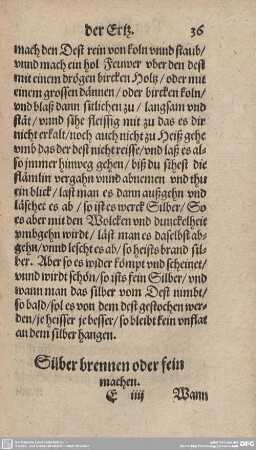 der Ertz. 36
mach den Dest rein von koln vnnd staub/
vnnd mach ein hol Feuwer vber den dest
mit einem drögen bircken Holtz/ oder mit
einem grossen dännen/ oder bircken koln/
vnd blaß dann sitlichen zu/ langsam vnd
stät/ vnnd sihe fleissig mit zu das es dir
nicht erkalt/ noch auch nicht zu Heiß gehe
vmb das der dest nicht reisse/ vnd laß es al-
so jmmer hinweg gehen/ biß du sihest die
flämlin vergahn vnnd abnemen vnd thu
ein blick/ last man es dann außgehn vnd
läschet es ab/ so ist es werck Silber/ So
es aber mit den Wolcken vnd dunckelheit
vmbgehn wirdt/ läst man es daselbst ab-
gehn/ vnnd lescht es ab/ so heists brand sil-
ber. Aber so es wider kömpt vnd scheinet/
vnnd wirdt schön/ so ists fein Silber/ vnd
wann man das silber vom Dest nimbt/
so bald/ sol es von dem dest gestochen wer-
den/ je heisser je besser/ so bleibt kein vnflat
an dem silber hangen.
Silber brennen oder fein
machen.
E iiij Wann